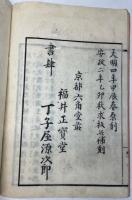 天明四年甲辰春原刻
安政二年乙卯秋求板補刻
京都六角堂前
書肆
福井正寳堂
丁子屋源次郎